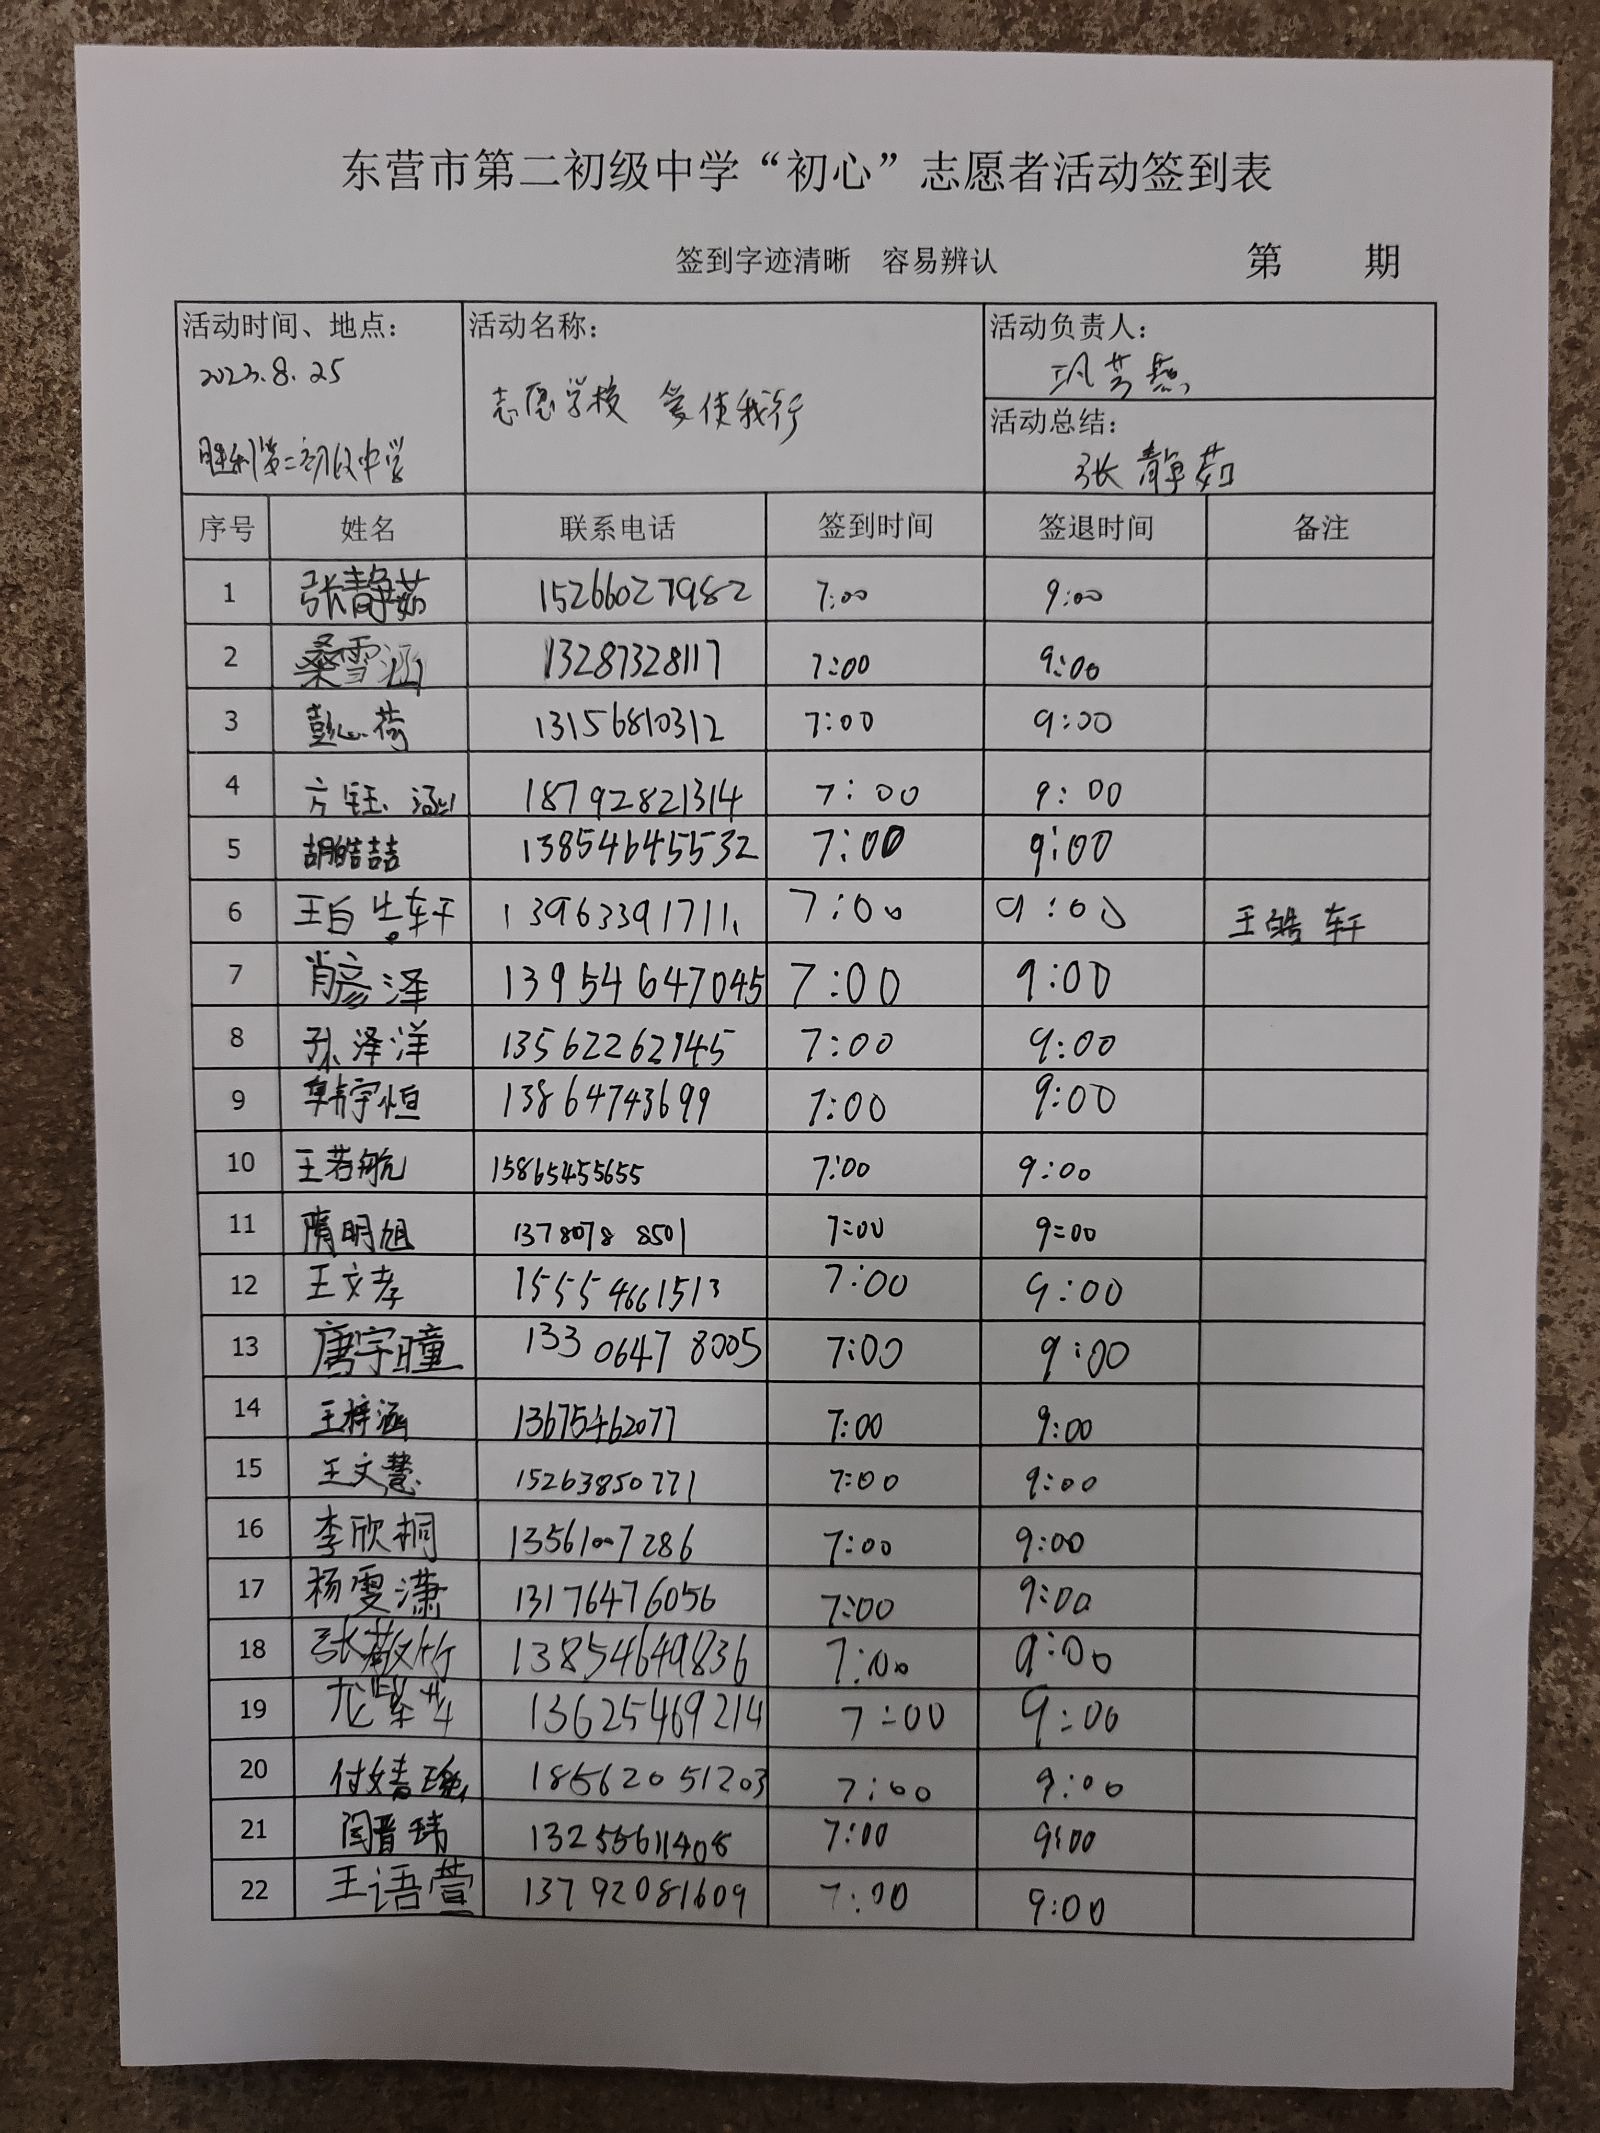 东营市第二初级中学“初心”志愿者活动签到表
签到字迹清晰 容易辨认 第 期
活动时间、地点： 活动名称： 活动负责人：
2023.8.25 巩芳燕
志愿学校 爱使我行
活动总结：
胜利第二初级中学 张静茹
序号 姓名 联系电话 签到时间 签退时间 备注
1 张静茹 15266027982 7:00 9:00
2 桑雪涵 13287328117 7:00 9:00
3 彭心荷 13156810312 7:00 9:00
4 方钰涵 18792821314 7:00 9:00
5 胡皓喆 13854645532 7:00 9:00
6 王皓轩 13963391711 7:00 9:00 王皓轩
7 肖彦泽 13954647045 7:00 9:00
8 孙泽洋 13562262745 7:00 9:00
9 韩宇恒 13864743699 7:00 9:00
10 王若航 15865455655 7:00 9:00
11 隋明旭 13780788501 7:00 9:00
12 王文孝 15554661513 7:00 9:00
13 唐宇瞳 133 0647 8005 7:00 9:00
14 王梓涵 13675462077 7:00 9:00
15 王文慧 15263850771 7:00 9:00
16 李欣桐 13561007286 7:00 9:00
17 杨雯潇 13176476056 7:00 9:00
18 张竹 13854649836 7:00 9:00
19 龙 13625469214 7:00 9:00
20 付 18562051203 7:00 9:00
21 闫晋玮 13255611408 7:00 9:00
22 王语萱 13792081609 7:00 9:00